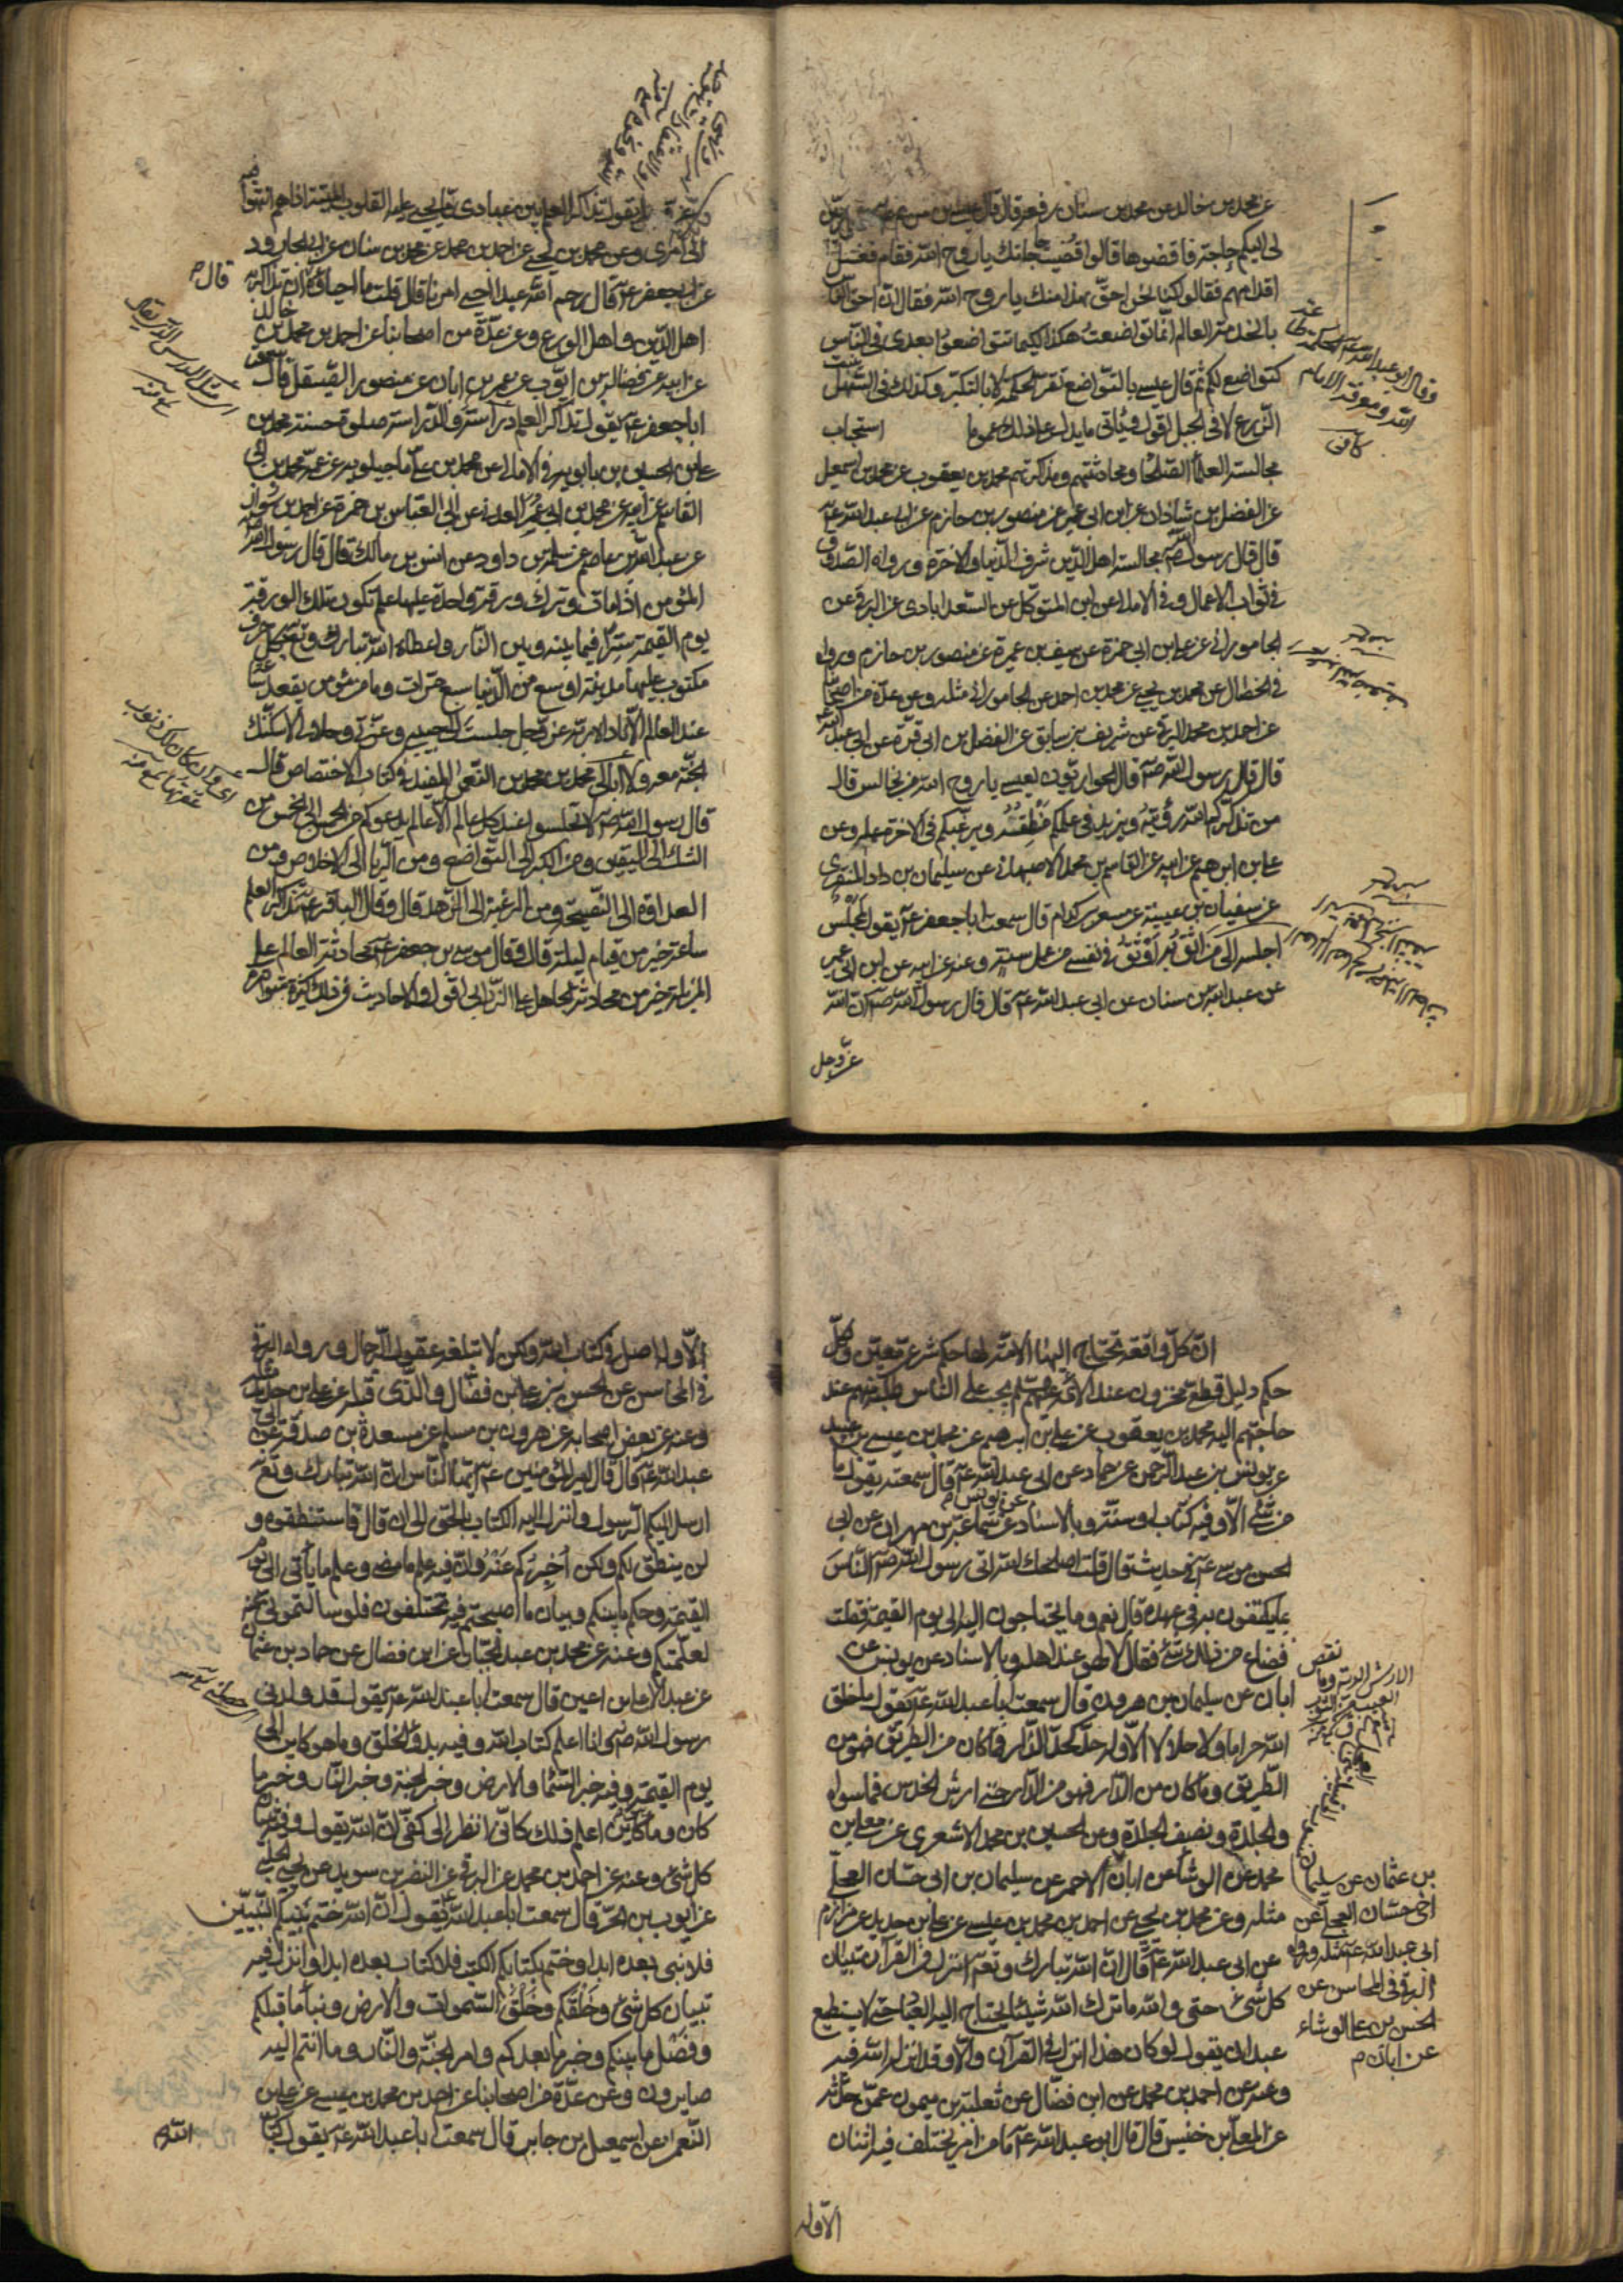 عن محمد بن خالد عن محمد بن سنان رفعه قال قال عيسى بن مريم
لى اليكم حاجة فاقضوها قالوا قضيت حاجتك يا روح الله فقام فغسل
اقدامهم فقالوا كنا نحن احق بهذا منك يا روح الله فقال ان احق الناس
بالخدمة العالم انما تواضعت هكذا لكيما تتواضعوا بعدى فى الناس
كتواضعى لكم ثم قال عيسى بالتواضع تعمر الحكمة لا بالتكبر وكذلك فى السهل
الزرع لا فى الجبل اقول ويأتى ما يدل على ذلك عموما استحباب
مجالسة العلماء الصلحا ومحادثتهم ومذاكرتهم محمد بن يعقوب عن محمد بن اسمعيل
عن الفضل بن شاذان عن ابن ابى عمير عن منصور بن حازم عن ابى عبد الله ع
قال قال رسول الله ص مجالسة اهل الدين شرف الدنيا والاخرة ورواه الصدوق
فى ثواب الاعمال وفى الامالى عن ابن المتوكل عن السعدابادى عن البرقى عن
الجامورانى عن على بن ابى حمزة عن سيف بن عميرة عن منصور بن حازم ورواه
فى الخصال عن محمد بن يحيى عن محمد بن احمد عن الجامورانى مثله وعن عدة من اصحابنا
عن احمد بن محمد البرقى عن شريف بن سابق عن الفضل بن ابى قرة عن ابى عبد الله
قال قال رسول الله ص قال الحواريون لعيسى يا روح الله من نجالس قال
من تذكركم الله رؤيته ويزيد فى علمكم منطقه ويرغبكم فى الاخرة عمله وعن
على بن ابرهيم عن ابيه عن القاسم بن محمد الاصبهانى عن سليمان بن داود المنقرى
عن سفيان بن عيينة عن مسعر بن كدام قال سمعت ابا جعفر ع يقول لمجلس
اجلسه الى من اثق به اوثق فى نفسى من عمل سنة وعنه عن ابيه عن ابن ابى عمير
عن عبد الله بن سنان عن ابى عبد الله ع قال قال رسول الله ص ان الله
عز وجل
يقول تذاكر العلم بين عبادى مما يحيى عليه القلوب الميتة اذا هم انتهوا فيه
الى امرى وعن محمد بن يحيى عن احمد بن محمد عن محمد بن سنان عن ابى الجارود
عن ابى جعفر ع قال رحم الله عبدا احيى امرنا قال قلت ما احياؤه ان تذاكر به
قال م
اهل الدين واهل الورع وعن عدة من اصحابنا عن احمد بن محمد بن خالد
عن ابيه عن فضالة بن ايوب عن عمر بن ابان عن منصور الصيقل قال سمعت
ابا جعفر ع يقول تذاكر العلم دراسة والدراسة صلوة حسنة محمد بن
على بن الحسين بن بابويه فى الامالى عن محمد بن على ماجيلويه عن عمه محمد بن ابى
القاسم عن ابيه عن محمد بن ابى عمر العدنى عن ابى العباس بن حمزة عن احمد بن سوار
عن عبد الله بن عاصم عن سلمة بن داود عن انس بن مالك قال قال رسول الله ص
المؤمن اذا مات وترك ورقة واحدة عليها علم تكون تلك الورقة
يوم القيمة سترا فيما بينه وبين النار واعطاه الله تبارك وتعالى بكل حرف
مكتوب عليها مدينة اوسع من الدنيا سبع مرات وما من مؤمن يقعد ساعة
عند العالم الا ناداه ربه عز وجل جلست الى حبيبى وعزتى وجلالى لاسكننك
الجنة معه ولا ابالى محمد بن محمد بن النعمن المفيد فى كتاب الاختصاص قال
قال رسول الله ص لا تجلسوا عند كل عالم الا عالم يدعوكم من الخمس الى الخمس من
الشك الى اليقين ومن الكبر الى التواضع ومن الريا الى الاخلاص ومن
العداوة الى النصيحة ومن الرغبة الى الزهد قال وقال الباقر ع تذاكر العلم
ساعة خير من قيام ليلة قال وقال موسى بن جعفر ع محادثة العالم على
المزبلة خير من محادثة الجاهل على الزرابى اقول والاحاديث فى ذلك كثيرة متواترة
ان كل واقعة تحتاج اليها الامة لها حكم شرعى معين ولكل
حكم دليل قطعى مخزون عند الائمة ع يجب على الناس طلبه منهم عند
حاجتهم اليه محمد بن يعقوب عن على بن ابرهيم عن محمد بن عيسى بن عبيد
عن يونس بن عبد الرحمن عن حماد عن ابى عبد الله ع قال سمعته يقول ما
من شئ الا وفيه كتاب او سنة وبالاسناد عن يونس م عن سماعة بن مهران عن ابى
الحسن موسى ع فى حديث قال قلت اصلحك الله اتى رسول الله ص الناس
بما يكتفون به فى عهده قال نعم وما يحتاجون اليه الى يوم القيمة فقلت
فضاع من ذلك شئ فقال لا هو عند اهله وبالاسناد عن يونس عن
ابان عن سليمان بن هرون قال سمعت ابا عبد الله ع يقول ما خلق
الله حراما ولا حلالا الا وله حد كحد الدار فما كان من الطريق فهو من
الطريق وما كان من الدار فهو من الدار حتى ارش الخدش فما سواه
والجلدة ونصف الجلدة وعن الحسين بن محمد الاشعرى عن معلى بن
محمد عن الوشا عن ابان الاحمر عن سليمان بن ابى حسان العجلى
مثله وعن محمد بن يحيى عن احمد بن محمد بن عيسى عن على بن حديد عن مرازم
عن ابى عبد الله ع قال ان الله تبارك وتعالى انزل فى القرآن تبيان
كل شئ حتى والله ما ترك الله شيئا يحتاج اليه العباد حتى لا يستطيع
عبد ان يقول لو كان هذا انزل فى القرآن والا وقد انزل الله فيه
وعنه عن احمد بن محمد عن ابن فضال عن ثعلبة بن ميمون عمن حدثه
عن المعلى بن خنيس قال قال ابو عبد الله ع ما من امر يختلف فيه اثنان
بن عثمان عن سليمان
اخى حسان العجلى عن
ابى عبد الله ع مثله ورواه
البرقى فى المحاسن عن
الحسن بن على الوشاء
عن ابان م
الا وله
الا وله اصل فى كتاب الله ولكن لا تبلغه عقول الرجال ورواه البرقى
فى المحاسن عن الحسن بن على بن فضال والذى قبله عن على بن حديد مثله
وعنه عن بعض اصحابه عن هرون بن مسلم عن مسعدة بن صدقة عن ابى
عبد الله ع قال قال امير المؤمنين ع ايها الناس ان الله تبارك وتعالى
ارسل اليكم الرسول وانزل اليه الكتاب بالحق الى ان قال فاستنطقوه و
لن ينطق لكم ولكن اخبركم عنه ان فيه علم ما مضى وعلم ما يأتى الى يوم
القيمة وحكم ما بينكم وبيان ما اصبحتم فيه تختلفون فلو سألتمونى عنه
لعلمتكم وعنه عن محمد بن عبد الجبار عن ابن فضال عن حماد بن عثمان
عن عبد الاعلى بن اعين قال سمعت ابا عبد الله ع يقول قد ولدنى
رسول الله ص وانا اعلم كتاب الله وفيه بدؤ الخلق وما هو كاين الى
يوم القيمة وفيه خبر السماء والارض وخبر الجنة وخبر النار وخبر ما
كان وما هو كاين اعلم ذلك كانى انظر الى كفى ان الله يقول فيه تبيان
كل شئ وعنه عن احمد بن محمد عن البرقى عن النضر بن سويد عن يحيى الحلبى
عن ايوب بن الحر قال سمعت ابا عبد الله ع يقول ان الله ختم بنبيكم النبيين
فلا نبى بعده ابدا وختم بكتابكم الكتب فلا كتاب بعده ابدا وانزل فيه
تبيان كل شئ وخلقكم وخلق السموات والارض ونبأ ما قبلكم
وفصل ما بينكم وخبر ما بعدكم وامر الجنة والنار وما انتم اليه
صايرون وعن عدة من اصحابنا عن احمد بن محمد بن عيسى عن على بن
النعمن عن اسمعيل بن جابر قال سمعت ابا عبد الله ع يقول كتاب
الله